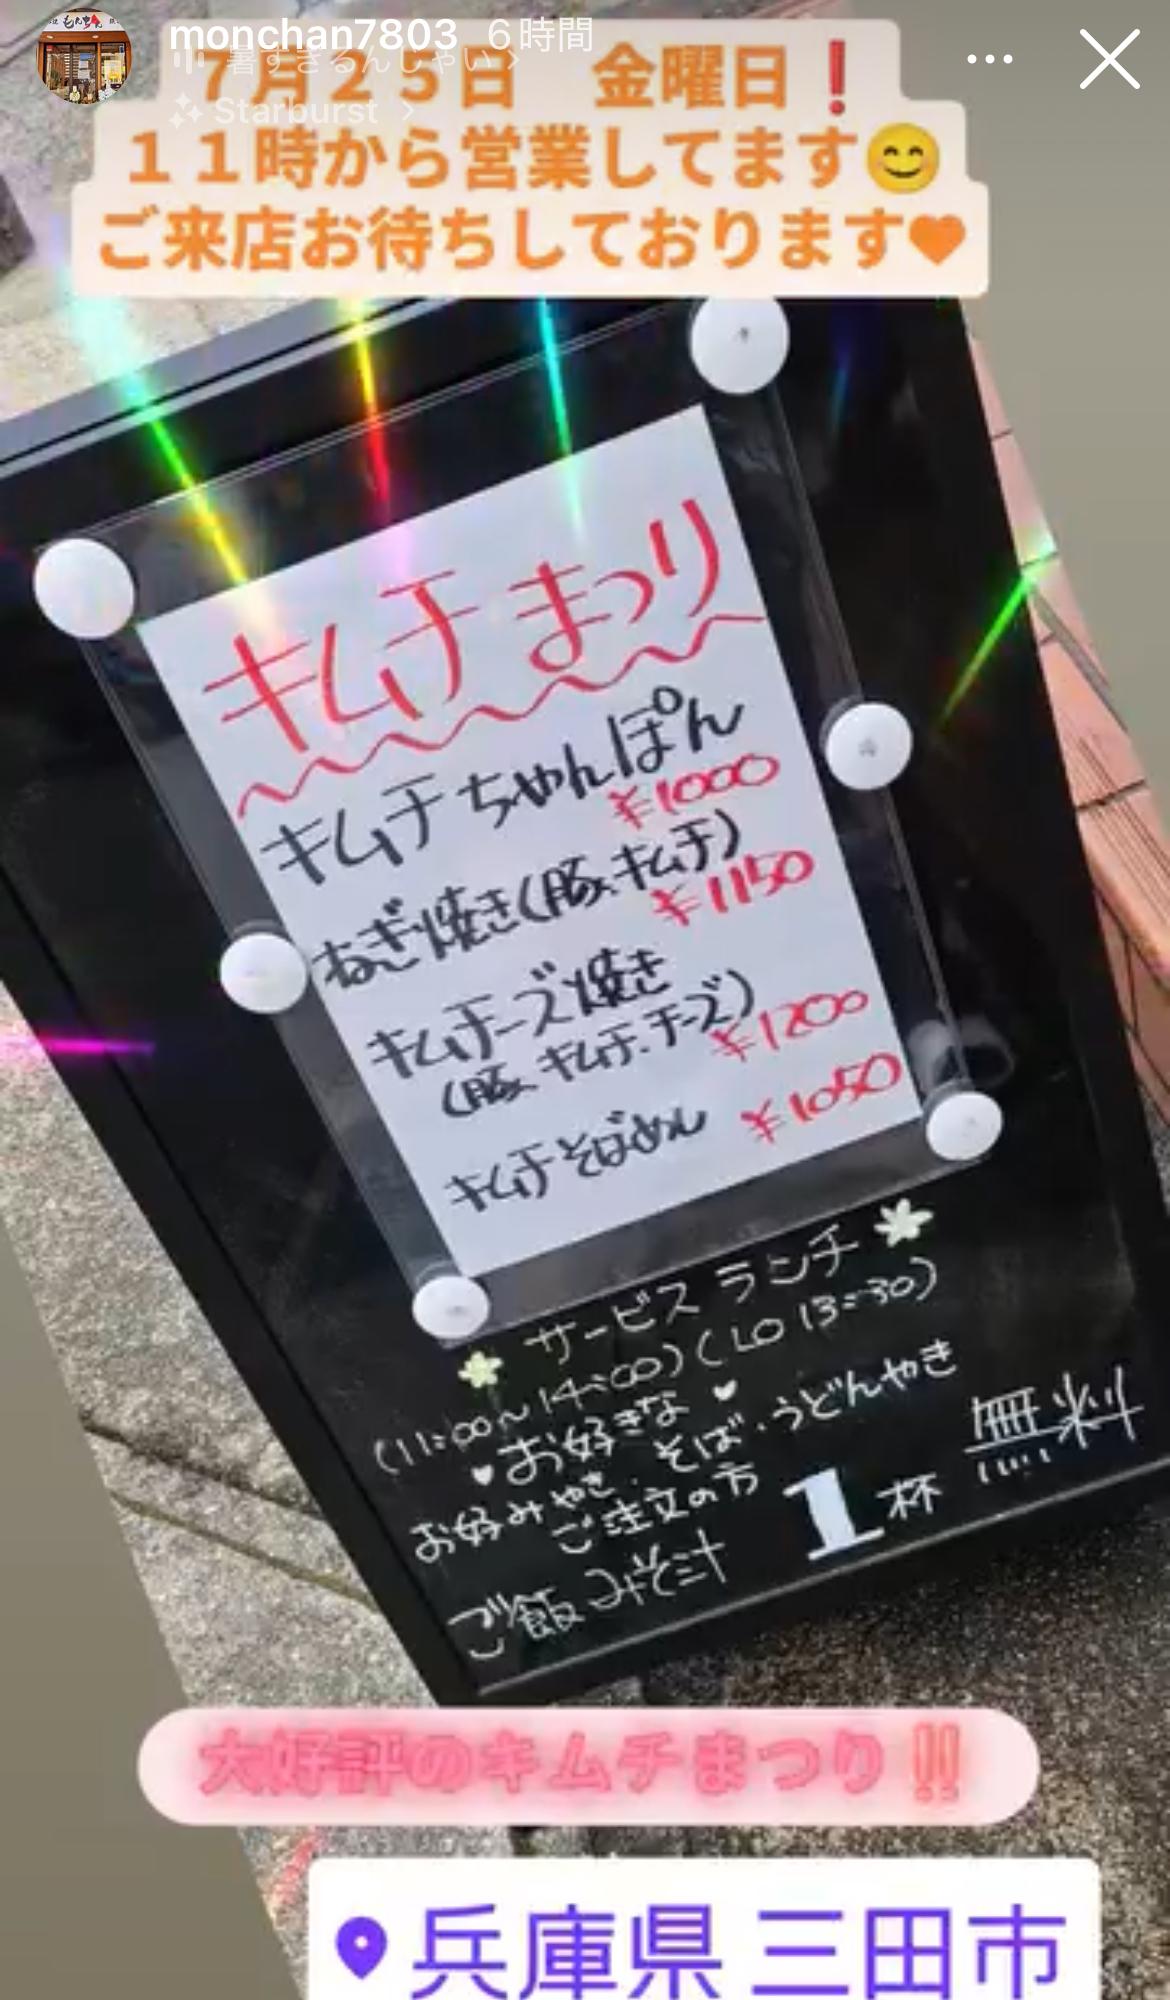 monchan7803 6時間
暑すぎるんじゃい
Starburst
7月25日 金曜日❗
11時から営業してます😊
ご来店お待ちしております🧡
キムチまつり
キムチちゃんぽん
¥1000
ねぎ焼き(豚、キムチ)
¥1150
キムチーズ焼き
(豚、キムチ、チーズ)
¥1200
キムチそばめし ¥1050
サービスランチ
(11:00〜14:00)(LO 13:30)
♥お好きな♥
お好みやき、そば・うどんやき
ご注文の方
ご飯みそ汁 1杯 無料
大好評のキムチまつり‼
兵庫県 三田市